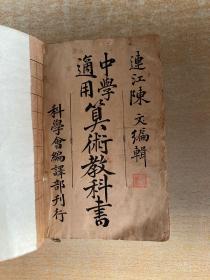 連江陳文編輯
中學適用算術教科書
科學會編譯部刊行